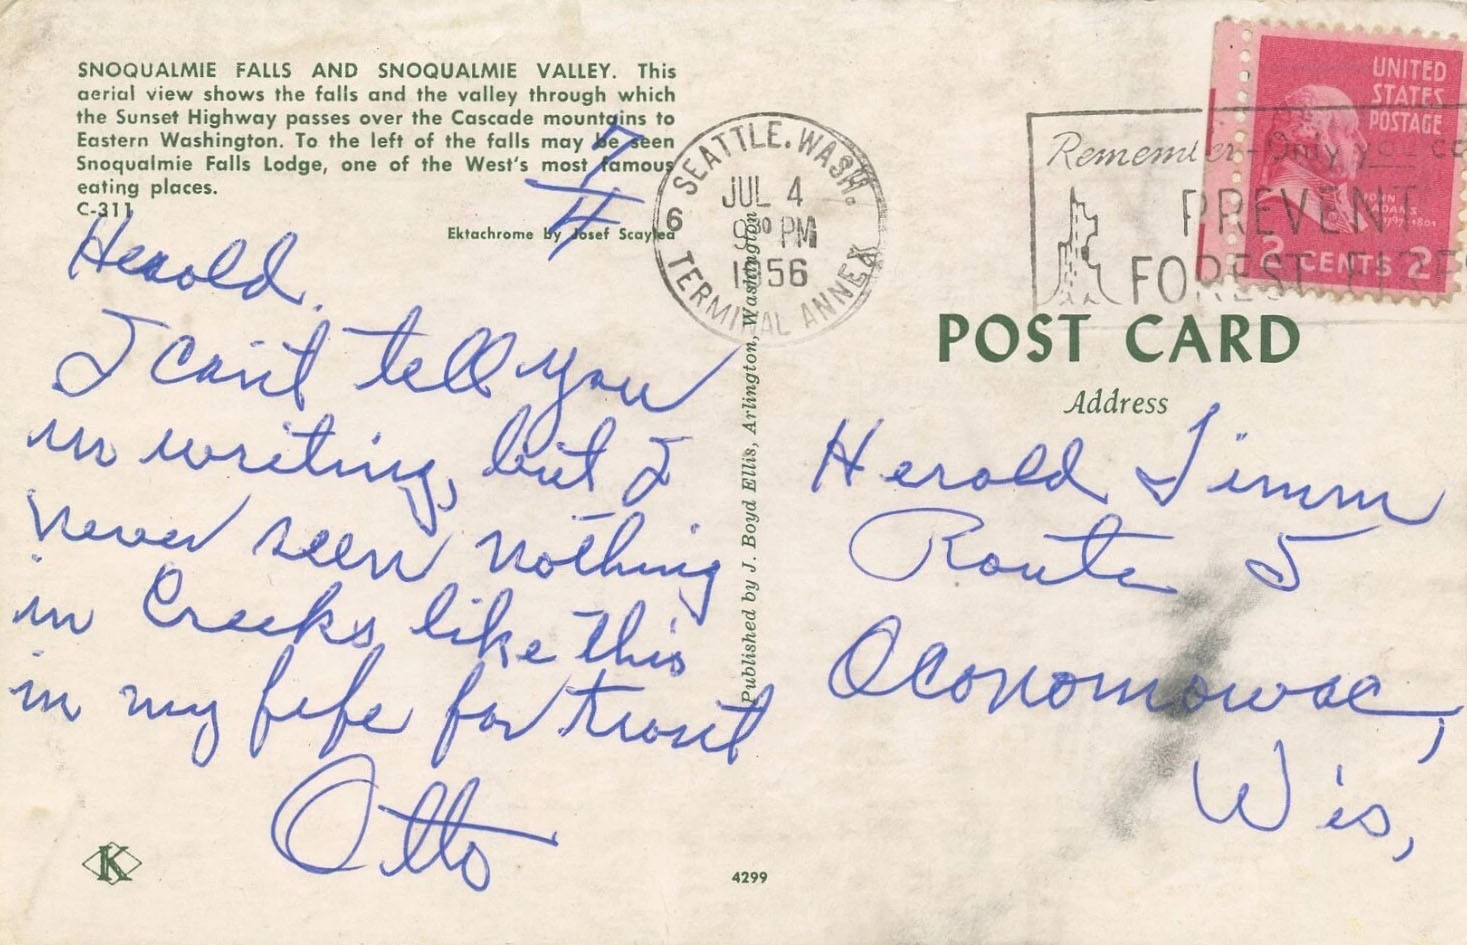 SNOQUALMIE FALLS AND SNOQUALMIE VALLEY. This
aerial view shows the falls and the valley through which
the Sunset Highway passes over the Cascade mountains to
Eastern Washington. To the left of the falls may be seen
Snoqualmie Falls Lodge, one of the West's most famous
eating places.
C-311
Ektachrome by Josef Scaylea
7/4
Herold.
I can't tell you
in writing, but I
never seen nothing
in Creeks like this
in my life for trout
Otto
K
4299
Published by J. Boyd Ellis, Arlington, Washington
SEATTLE, WASH.
6
JUL 4
930 PM
1956
TERMINAL ANNEX
Remember-Only you
PREVENT
FOREST FIRES
UNITED
STATES
POSTAGE
JOHN
ADAMS
1797-1801
2 CENTS 2
POST CARD
Address
Herold Timm
Route 5
Oconomowoc,
Wis,